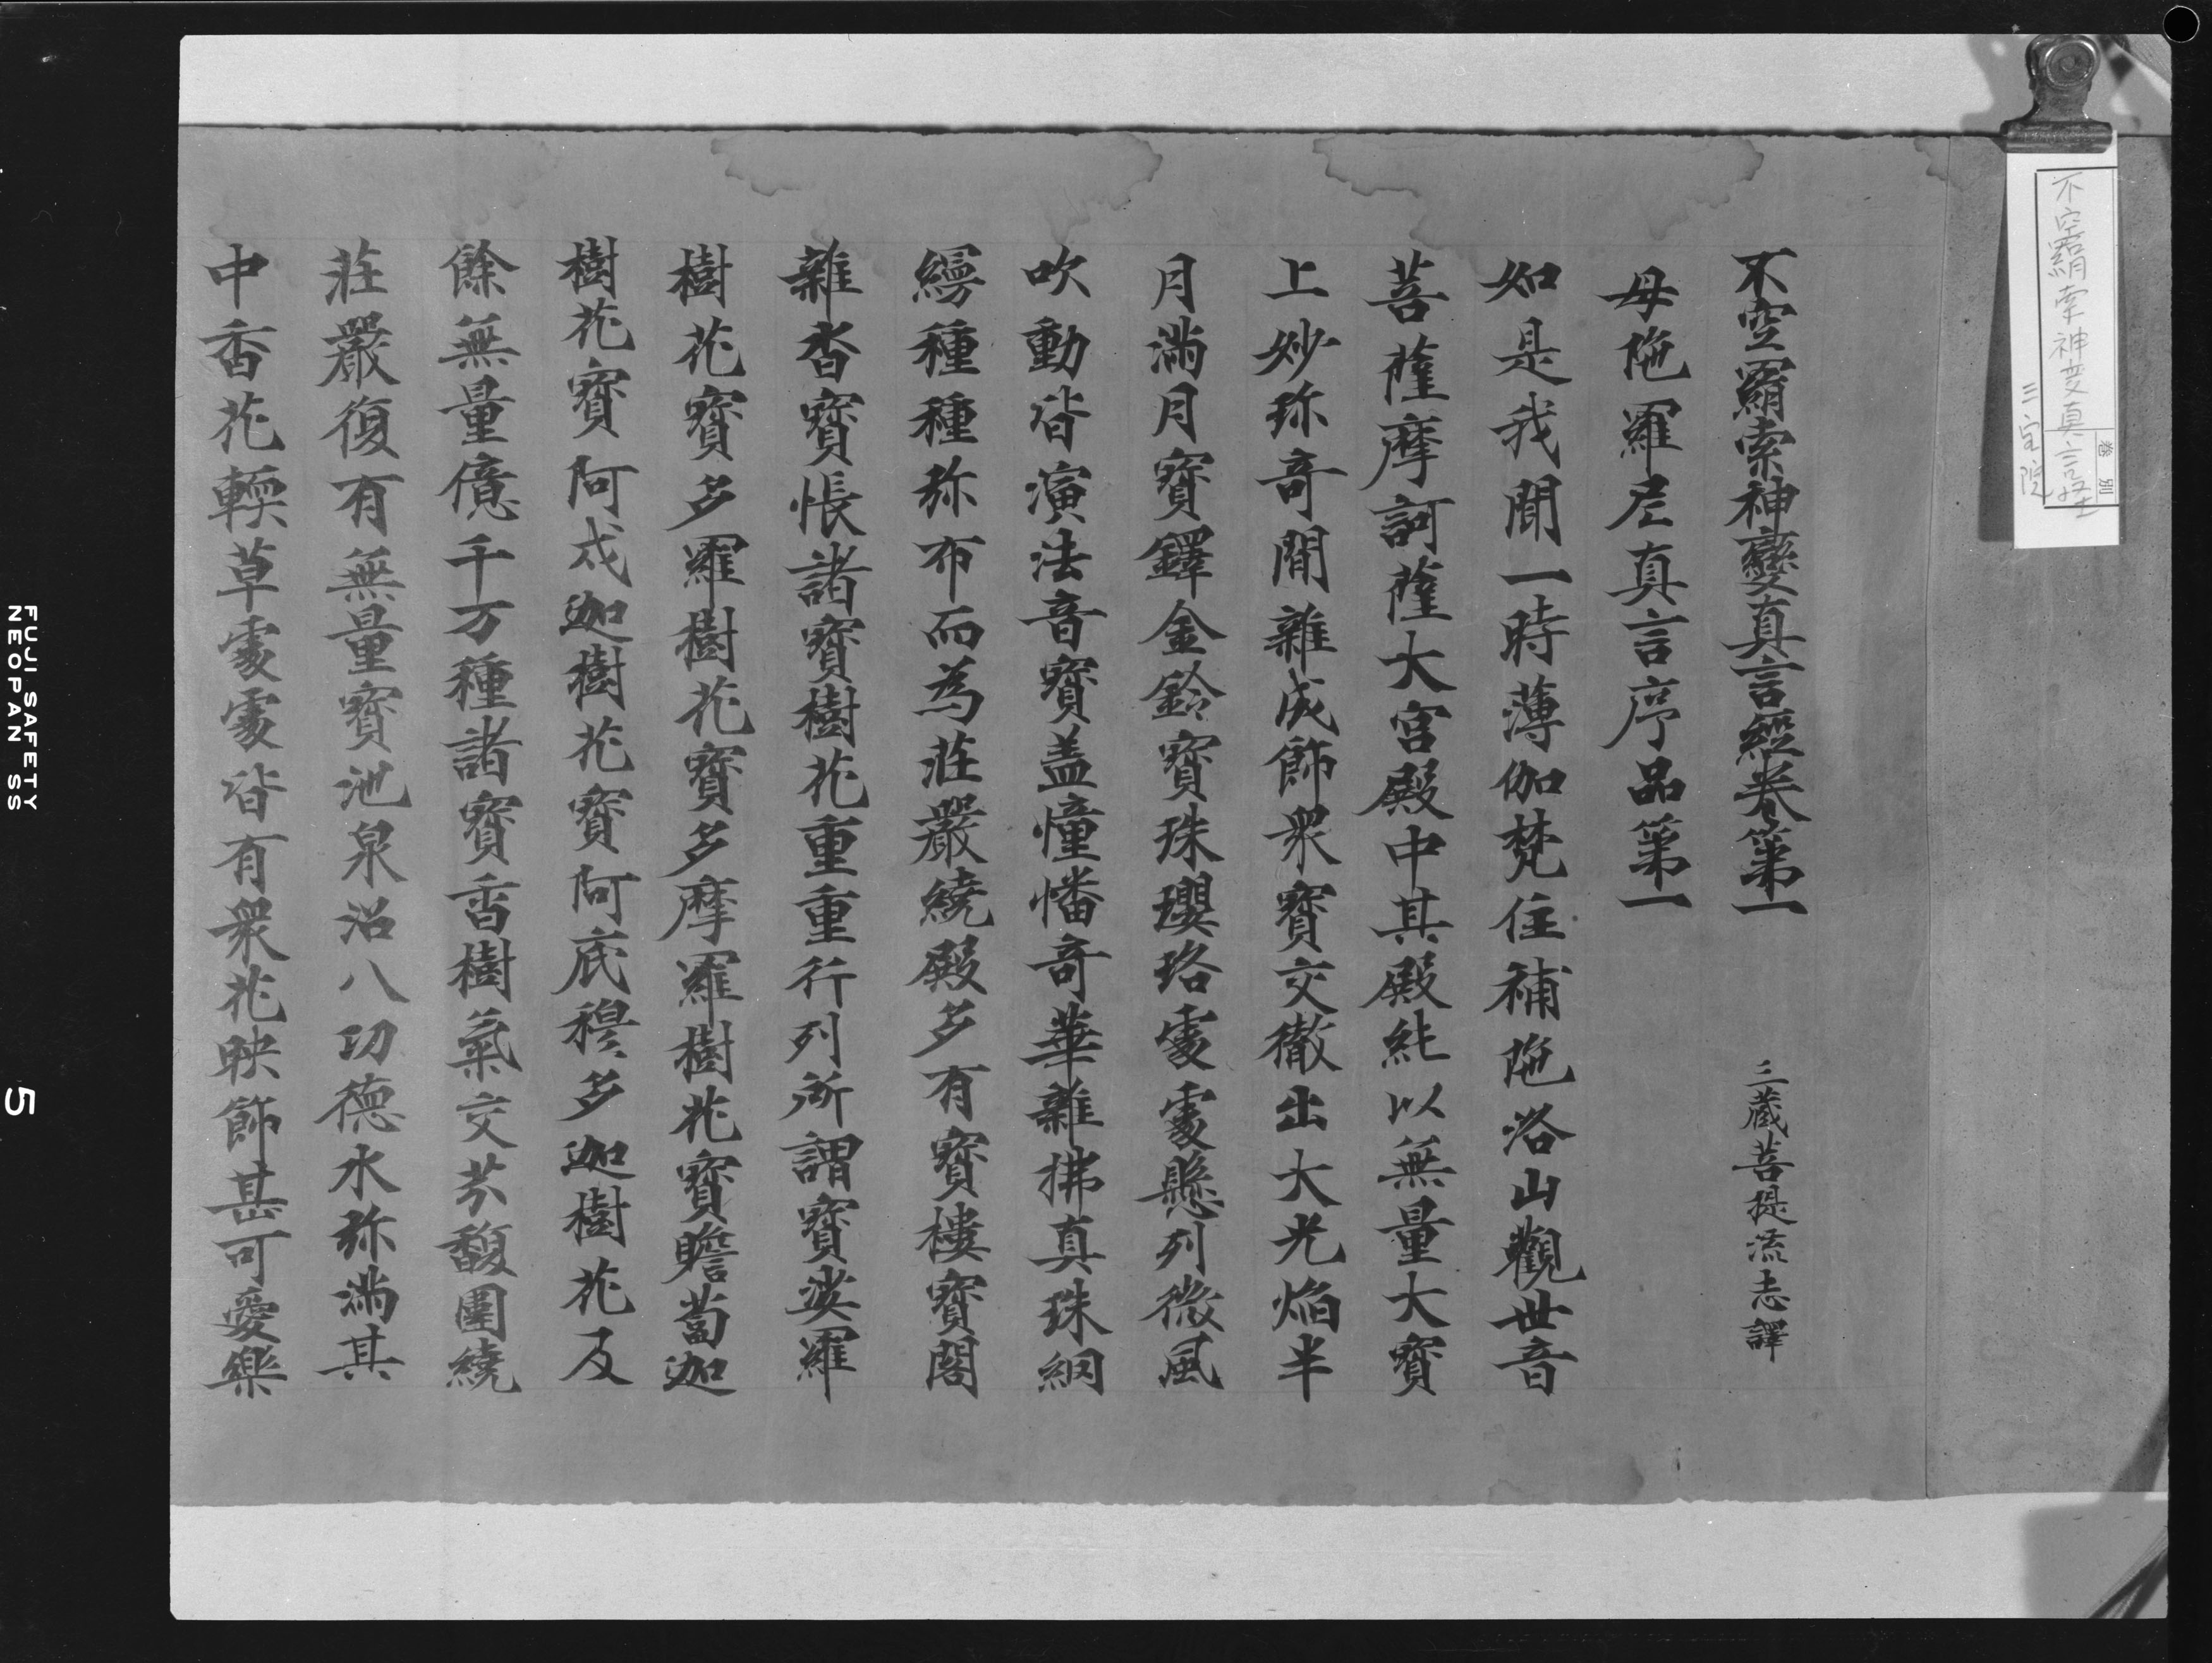 不空羂索神變真言經卷第一
三藏菩提流志譯
母陁羅尼真言序品第一
如是我聞一時薄伽梵住補陁洛山觀世音
菩薩摩訶薩大宮殿中其殿純以無量大寶
上妙珎奇間雜成飾衆寶交徹出大光焰半
月滿月寶鐸金鈴寶珠瓔珞處處懸列微風
吹動皆演法音寶盖幢幡奇華雜拂真珠網
縵種種弥布而為莊嚴繞殿多有寶樓寶閣
雜沓寶帳諸寶樹花重重行列所謂寶娑羅
樹花寶多羅樹花寶多摩羅樹花寶瞻蔔迦
樹花寶阿戍迦樹花寶阿底穆多迦樹花及
餘無量億千万種諸寶香樹氣交芬馥圍繞
莊嚴復有無量寶池泉沼八功德水弥滿其
中香花輭草處處皆有衆花映飾甚可愛樂
不空羂索神変真言経
三宝院
巻別
FUJI SAFETY
NEOPAN SS
5